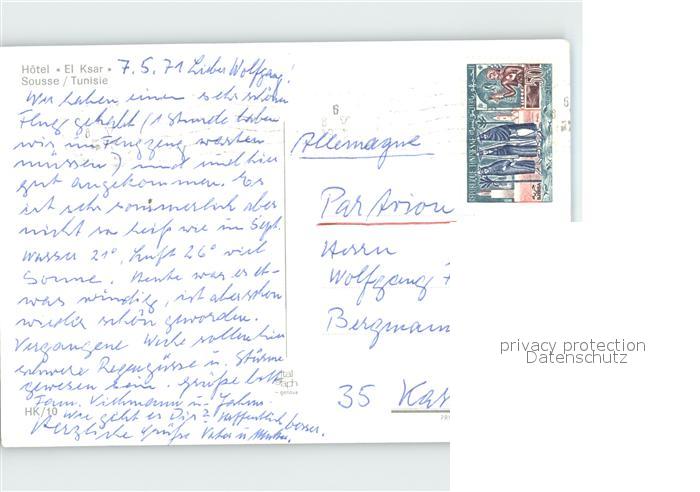 Hôtel • El Ksar •
Sousse / Tunisie
7.5.71 Lieber Wolfgang!
Wir haben einen sehr schönen
Flug gehabt (1 Stunde haben
wir im Flugzeug warten
müssen) und sind hier
gut angekommen. Es
ist sehr sommerlich aber
nicht so heiß wie im Sept.
Wasser 21°, Luft 26° viel
Sonne. Heute war es et-
was windig, ist aber schon
wieder schön geworden.
Vergangene Woche sollen hier
schwere Regengüsse u. Stürme
gewesen sein. Grüße bitte
Fam. u.
Wie geht es Dir? Hoffentlich besser.
Herzliche Grüße Vater u.
HK/10
ital
aph
– genova
Allemagne
Par Avion
Herrn
Wolfgang
Bergmann
35 Kas
REPUBLIQUE TUNISIENNE
50
privacy protection
Datenschutz